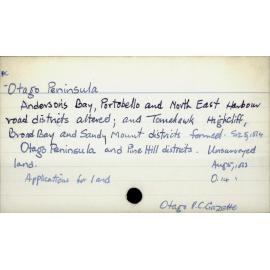 Otago Peninsula
Andersons Bay, Portobello and North East Harbour
road districts altered; and Tomahawk Highcliff,
Broad Bay and Sandy Mount districts formed.
Otago Peninsula and Pine Hill districts. Unsurveyed
land.
Applications for land
Otago P.C. Gazette